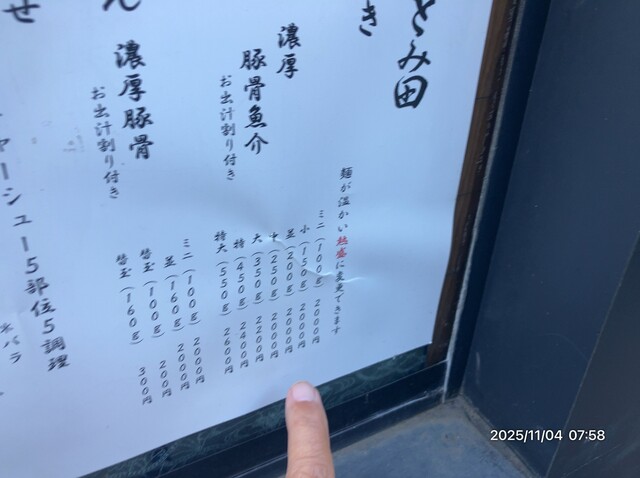 とみ田
き
麺が温かい熱盛に変更できます
濃厚
豚骨魚介
お出汁割り付き
ミニ(100g) 2000円
小(150g) 2000円
並(200g) 2000円
中(250g) 2000円
大(350g) 2200円
特(450g) 2400円
特大(550g) 2600円
濃厚豚骨
お出汁割り付き
ミニ(100g) 2000円
並(160g) 2000円
替玉(100g) 200円
替玉(160g) 300円
ん
チャーシュー5部位5調理
バラ
せ
2025/11/04 07:58